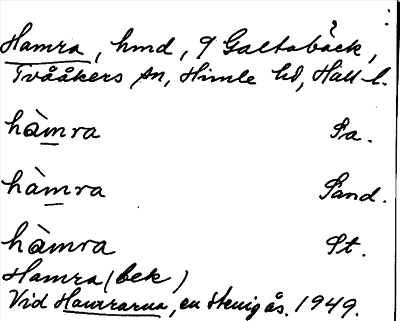 Hamra, hmd, 9 Galtabäck,
Tvååkers sn, Himle hd, Hall l.
hàmra Pa.
hàmra Sand.
hàmra St.
Hamra (bek)
Vid Hamrarna, en stenig ås. 1949.